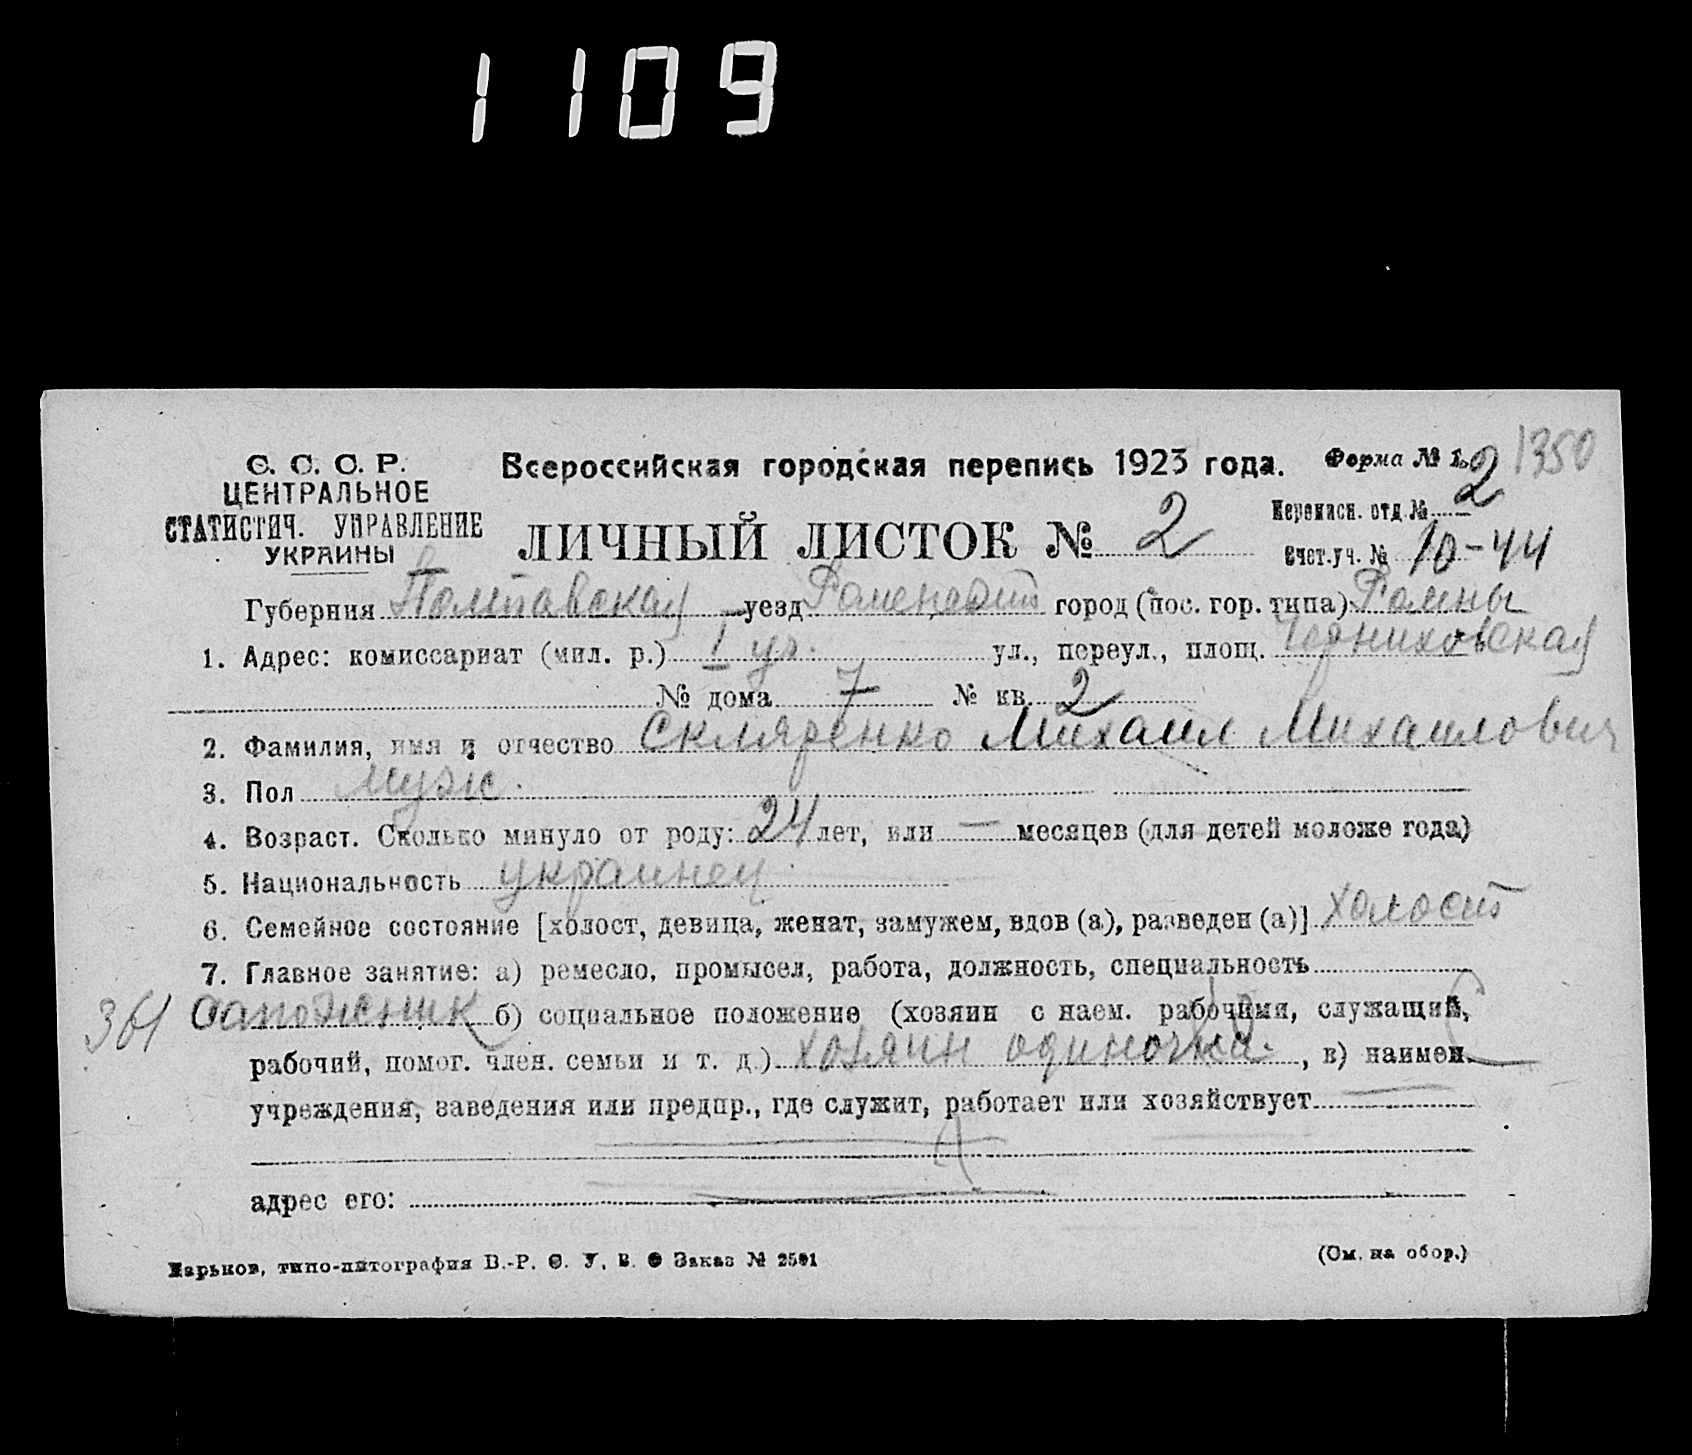 1109
1350
С. С. С. Р.
ЦЕНТРАЛЬНОЕ
СТАТИСТИЧ. УПРАВЛЕНИЕ
УКРАИНЫ
Всероссийская городская перепись 1923 года.
Форма № 1.
ЛИЧНЫЙ ЛИСТОК № 2
Переписн. отд. № 2
Счет. уч. № 10-44
Губерния Полтавская уезд Роменский город (пос. гор. типа) Ромны
1. Адрес: комиссариат (мил. р.) I уч. ул., переул., площ. Черниховская
№ дома 7 № кв. 2
2. Фамилия, имя и отчество Скляренко Михаил Михаилович
3. Пол муж.
4. Возраст. Сколько минуло от роду: 24 лет, или — месяцев (для детей моложе года)
5. Национальность украинец
6. Семейное состояние [холост, девица, женат, замужем, вдов (а), разведен (а)] холост
7. Главное занятие: а) ремесло, промысел, работа, должность, специальность
361 сапожник б) социальное положение (хозяин с наем. рабочими, служащий,
рабочий, помог. член. семьи и т. д.) хозяин одиночка. , в) наимен.
учреждения, заведения или предпр., где служит, работает или хозяйствует —
адрес его:
Харьков, типо-литография В.-Р. С. У. В. О Заказ № 2501
(См. на обор.)